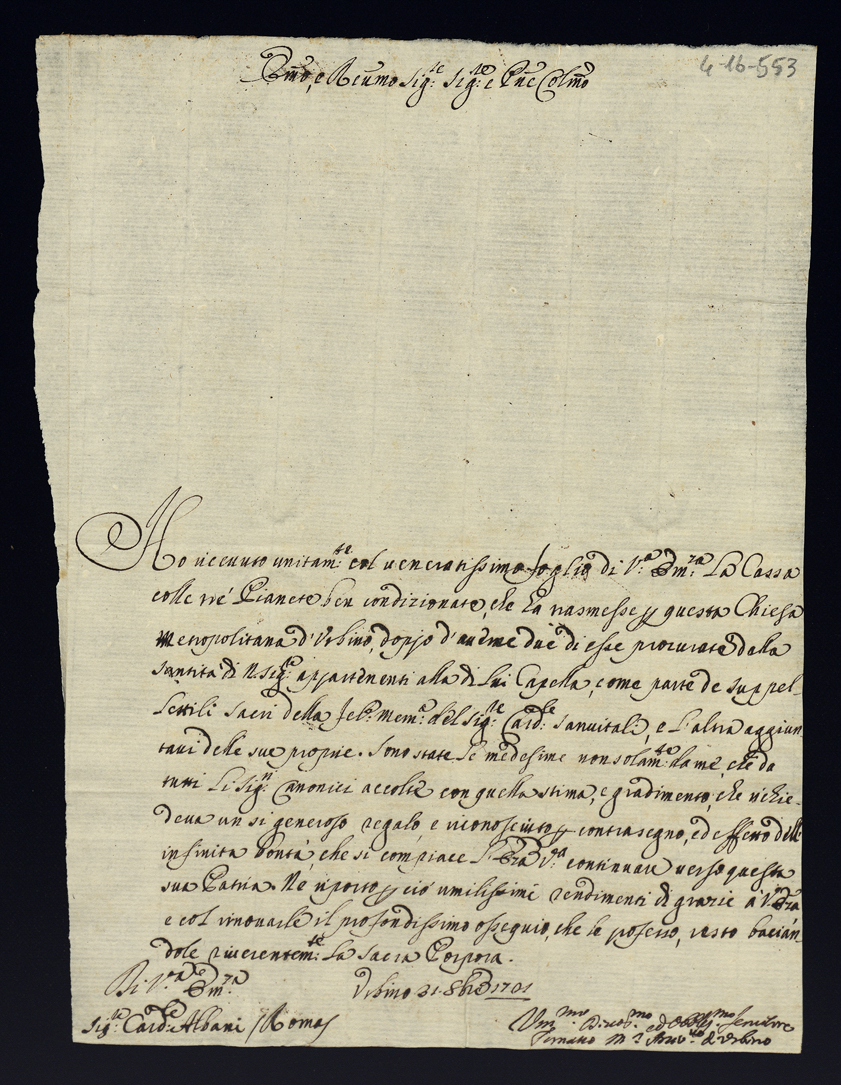 4-16-553
Emo, e Reumo Sig:re Sig:re e Pne Colmo
Ho riceuuto unitam:te col ueneratissimo foglio di V:a Em:za La Cassa
colle tré Pianete ben condizionate, che Ha trasmesse p questa Chiesa
Metropolitana d'Urbino, doppo d'auerne due di esse procurate dalla
Santità di N. Sig:re appartenenti alla di Lui Capella, come parte de suppel-
lettili sacri della fel: mem: del Sig:re Card:le Sanuitali, e l'altra aggiun-
taui delle sue proprie. Sono state le medesime non solam:te da me, che da
tutti Li Sig:ri Canonici accolte con quella stima, e gradimento, che richie-
deua un si generoso regalo, e riconosciuto p contrasegno, ed effetto dell'
infinita bontà, che si compiace l' Em:za V:a continuare uerso questa
sua Patria. Né riporto p ciò umilissimi rendimenti di grazie à V: Em:za
e col rinouarle il profondissimo ossequio, che le professo, resto bacian-
dole riuerentem:te La Sacra Porpora.
Di V:ra Em:za
Urbino 21 8bre 1701
Sig:re Card:le Albani /Roma/
Um:mo Diuot:mo ed Obblig:mo Seruitore
Arciu:o d'Urbino